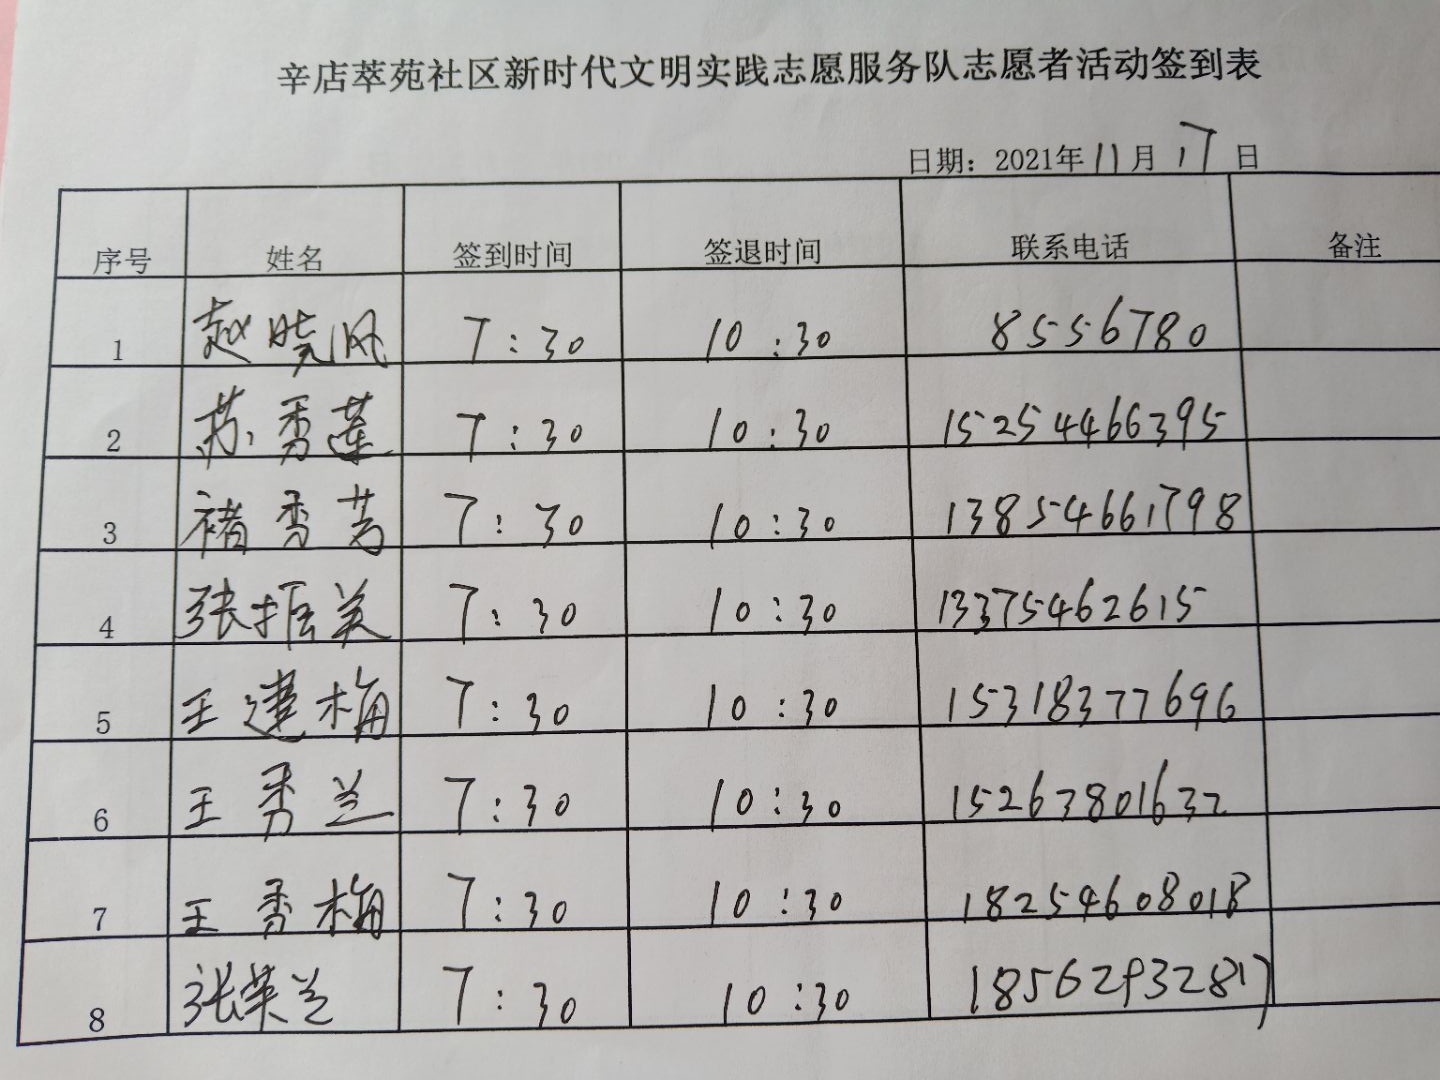 辛店萃苑社区新时代文明实践志愿服务队志愿者活动签到表
日期：2021年11月17日
序号 姓名 签到时间 签退时间 联系电话 备注
1 赵晓风 7:30 10:30 8556780
2 苏秀莲 7:30 10:30 15254466395
3 褚秀芳 7:30 10:30 13854661798
4 张振美 7:30 10:30 13375462615
5 王建梅 7:30 10:30 15318377696
6 王秀兰 7:30 10:30 15263801632
7 王秀梅 7:30 10:30 18254608018
8 张英兰 7:30 10:30 18562932817